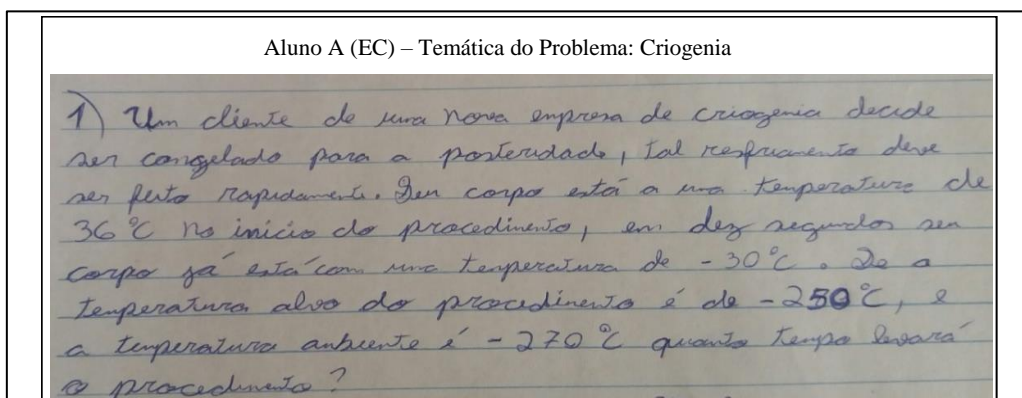 Aluno A (EC) – Temática do Problema: Criogenia
1) Um cliente de uma nova empresa de criogenia decide
ser congelado para a posteridade, tal resfriamento deve
ser feito rapidamente. Seu corpo está a uma temperatura de
36°C no início do procedimento, em dez segundos seu
corpo já está com uma temperatura de -30°C. Se a
temperatura alvo do procedimento é de -250°C, e
a temperatura ambiente é -270°C quanto tempo levará
o procedimento?